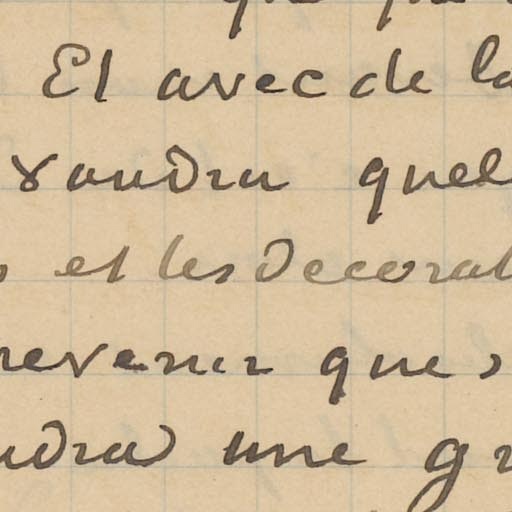 Et avec de la
voudra quel
et les Decorat
revenir que
udra une gr